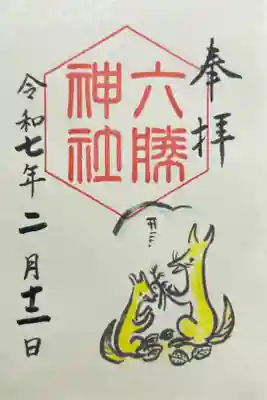 奉拝
六勝
神社
令和七年二月十二日